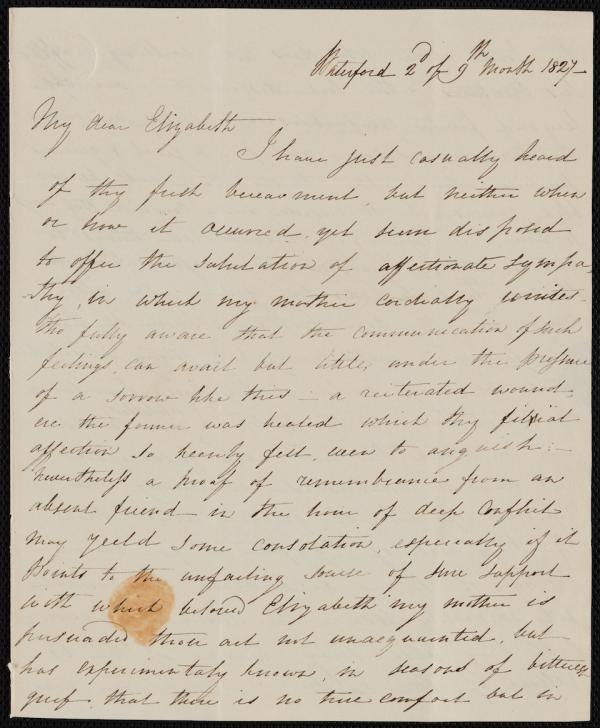 Waterford 2d of 9th Month 1827-
My dear Elizabeth
I have just casually heard
of thy fresh bereavment, but neither when
or how it occurred, yet seem disposed
to offer the salutation of affectionate sympa,
thy, in which my mother cordially unites.
tho fully aware that the communication of such
feelings, can avail but little, under the pressure
of a sorrow like this - a reiterated wound -
ere the former was healed which thy filial
affection so keenly felt, even to anguish: -
nevertheless a proof of remembrance from an
absent friend in the hour of deep conflict
may yeild some consolation, especially if it
Points to the unfailing source of sure support
with which beloved Elizabeth my mother is
persuaded thou art not unacquainted, but
has experimentaly known, in seasons of bitterest
grief, that there is no true comfort but in